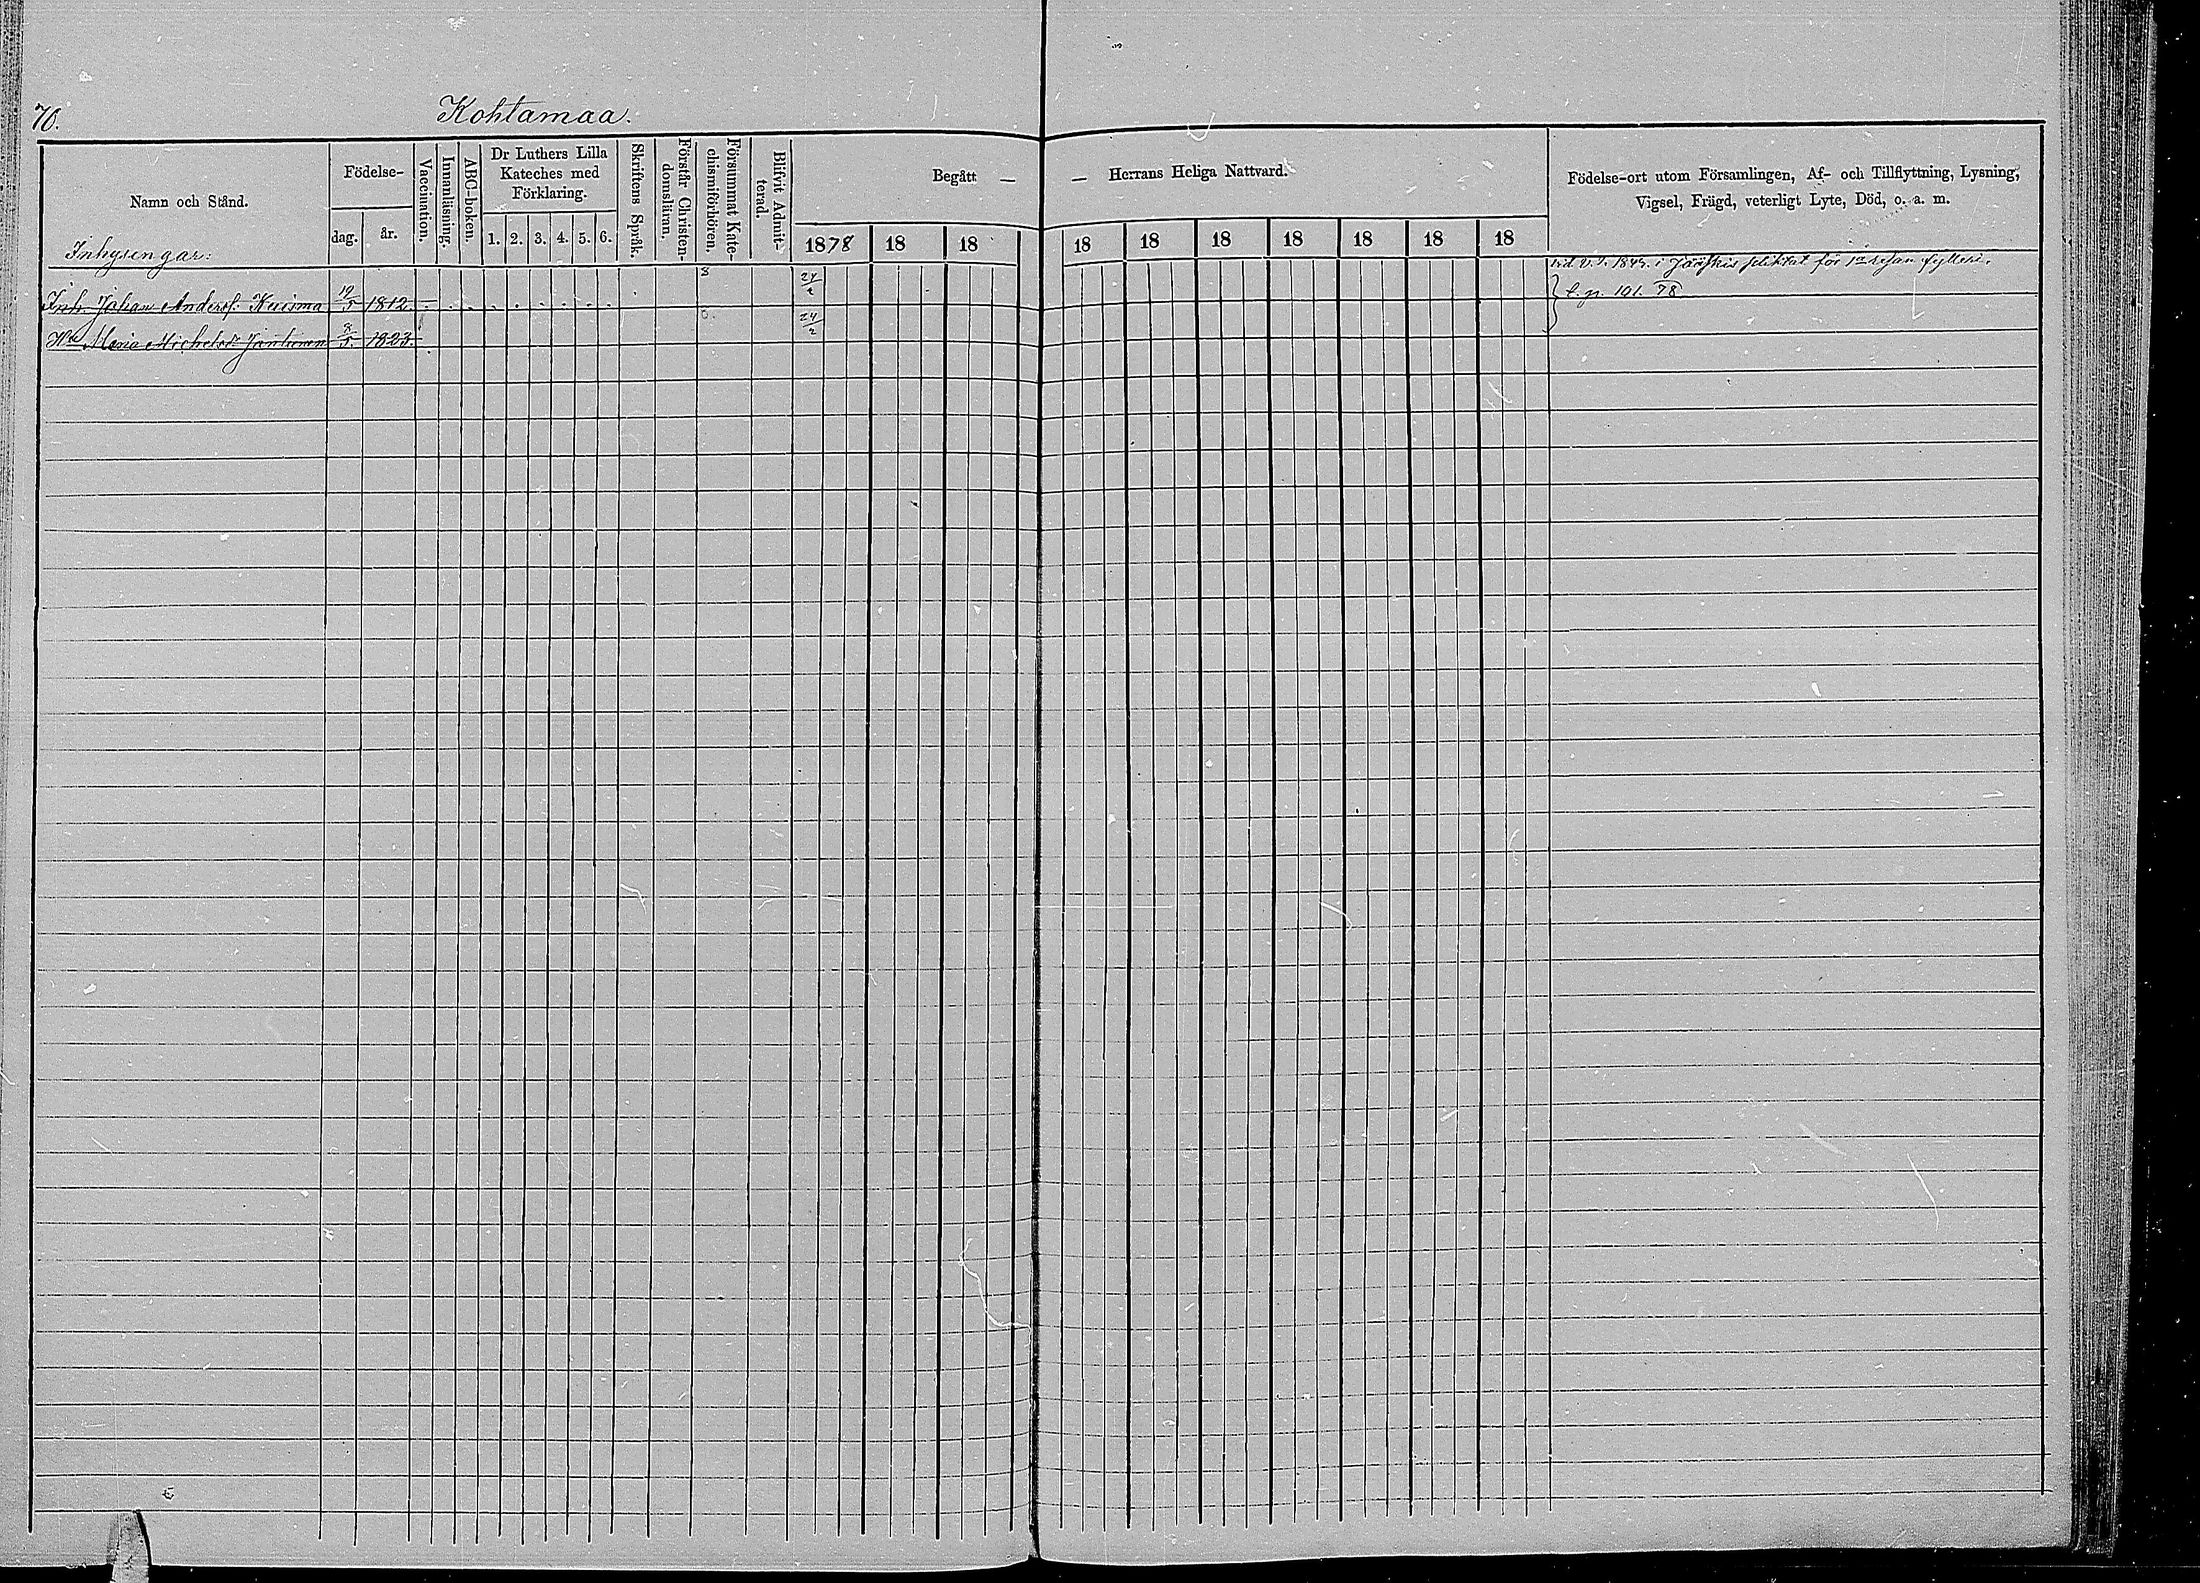 70.
Kohtamaa.
Namn och Stånd.
Födelse-
dag.
år.
Vaccination.
Innanläsning.
ABC-boken.
Dr Luthers Lilla
Kateches med
Förklaring.
1. 2. 3. 4. 5. 6.
Skriftens Språk.
Förstår Christen-
domsläran.
Försummat Kate-
chismiförhören.
Blifvit Admit-
terad.
Begått —
— Herrans Heliga Nattvard.
1878 18 18
18 18 18 18 18 18 18
Födelse-ort utom Församlingen, Af- och Tillflyttning, Lysning,
Vigsel, Frägd, veterligt Lyte, Död, o. a. m.
Inhysengar:
1843. i Jääskis pliktat för 1a resan fylleri.
Inh. Johan Andersf. Kuisma 19/5 1812. 8 24/2 p. 191. 78
Hu Maria Michelsdr 3/5. 1823. 24/2